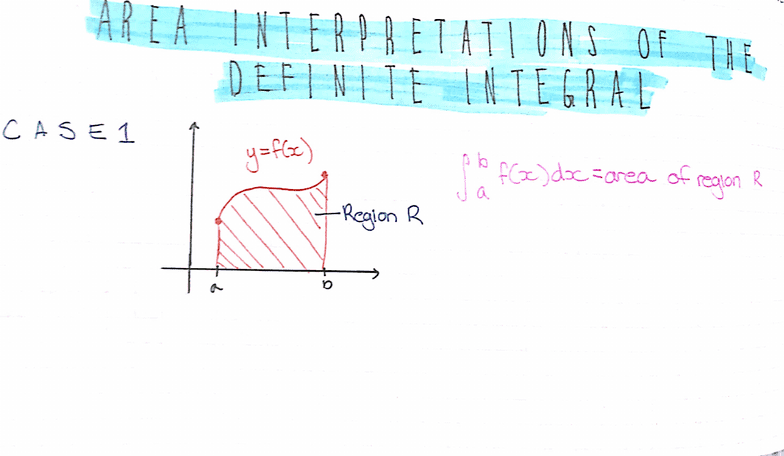 AREA INTERPRETATIONS OF THE
DEFINITE INTEGRAL
CASE 1
y=f(x)
∫ₐᵇ f(x)dx = area of region R
Region R
a
b